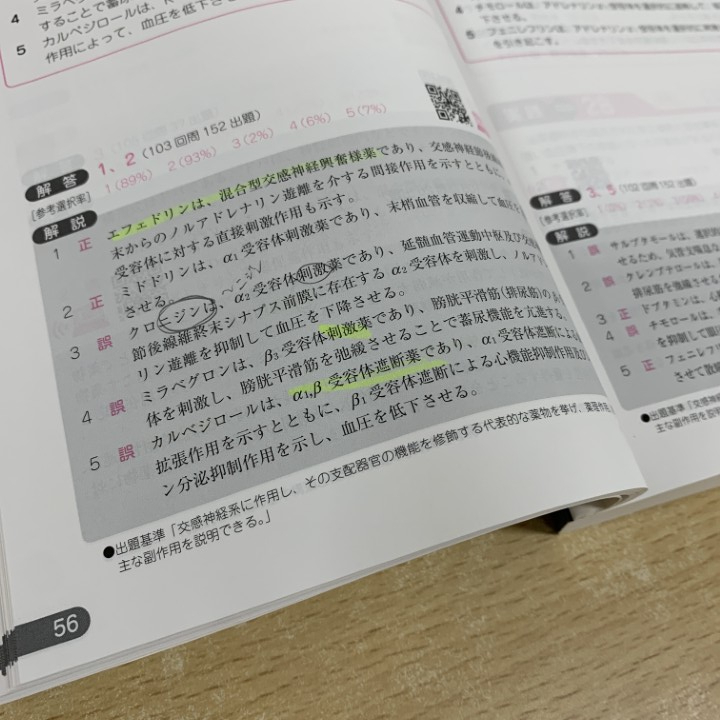 ミラベグ
4 することで蓄尿
カルベジロールは、
5 作用によって、血圧を低下さ
解答 1、2 (103回問152出題)
[参考選択率] 1(89%) 2(93%) 3(2%) 4(6%) 5(7%)
解説
1 正 エフェドリンは、混合型交感神経興奮様薬であり、交感神経節後線維
末からのノルアドレナリン遊離を介する間接作用を示すとともに、
受容体に対する直接刺激作用も示す。
2 正 ミドドリンは、α₁受容体刺激薬であり、末梢血管を収縮して血圧を
させる。
3 誤 クロニジンは、α₂受容体刺激薬であり、延髄血管運動中枢及び
節後線維終末シナプス前膜に存在するα₂受容体を刺激し、ノルア
リン遊離を抑制して血圧を下降させる。
4 誤 ミラベグロンは、β₃受容体刺激薬であり、膀胱平滑筋(排尿筋)のβ
体を刺激し、膀胱平滑筋を弛緩させることで蓄尿機能を亢進する。
5 誤 カルベジロールは、α₁,β受容体遮断薬であり、α₁受容体遮断によ
拡張作用を示すとともに、β₁受容体遮断による心機能抑制作用及び
ン分泌抑制作用を示し、血圧を低下させる。
●出題基準「交感神経系に作用し、その支配器官の機能を修飾する代表的な薬物を挙げ、薬理作用
主な副作用を説明できる。」
56
4
下させる。
5 フェニレフリンは、アドレナリン
を引き起こす。
解答 3、5 (102回問152出題)
[参考選択率]
解説
1 誤 サルブタモールは、選択的
せるため、気管支喘息
2 誤 クレンブテロールは、
排尿筋を弛緩させる
3 正 ドブタミンは、心
4 誤 チモロールは、
を抑制して眼
5 正 フェニレフリ
させて散
●出題基準「交感神経
主な副作用を説明